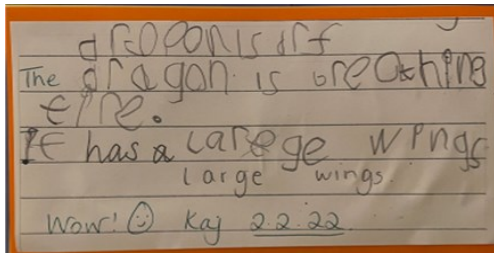 The dragon is breathing
fire.
It has a larege wings
large wings.
Wow! ☺ Kaj 2.2.22